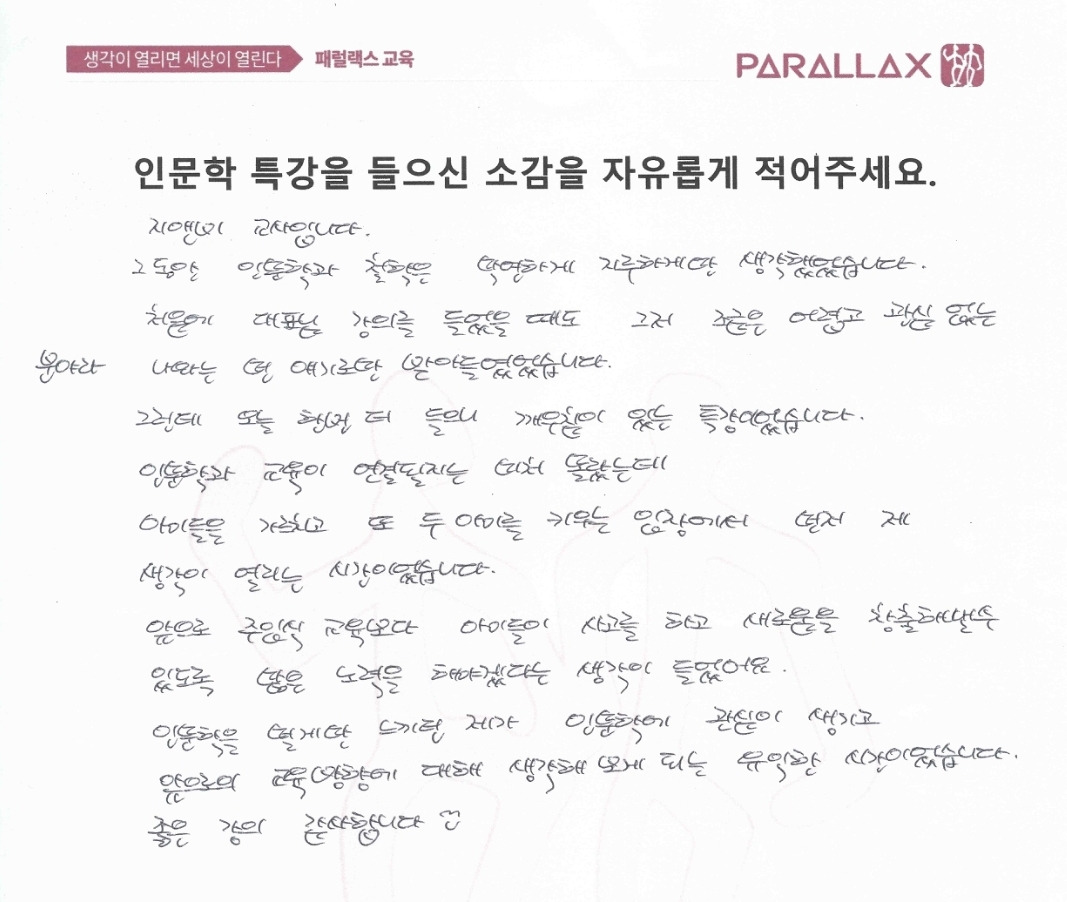 생각이 열리면 세상이 열린다 패럴랙스 교육
PARALLAX
인문학 특강을 들으신 소감을 자유롭게 적어주세요.
지앤비 교사입니다.
그동안 인문학과 철학은 막연하게 지루하게만 생각했었습니다.
처음에 대표님 강의를 들었을 때도 그저 조금은 어렵고 관심 없는
분야라 나와는 먼 얘기로만 받아들였었습니다.
그런데 오늘 한번 더 들으니 깨우침이 있는 특강이었습니다.
인문학과 교육이 연결될지는 미처 몰랐는데
아이들을 가르치고 또 두 아이를 키우는 입장에서 먼저 제
생각이 열리는 시간이었습니다.
앞으로 주입식 교육보다 아이들이 사고를 하고 새로움을 창출해낼수
있도록 많은 노력을 해야겠다는 생각이 들었어요.
인문학을 멀게만 느끼던 제가 인문학에 관심이 생기고
앞으로의 교육방향에 대해 생각해 보게 되는 유익한 시간이었습니다.
좋은 강의 감사합니다